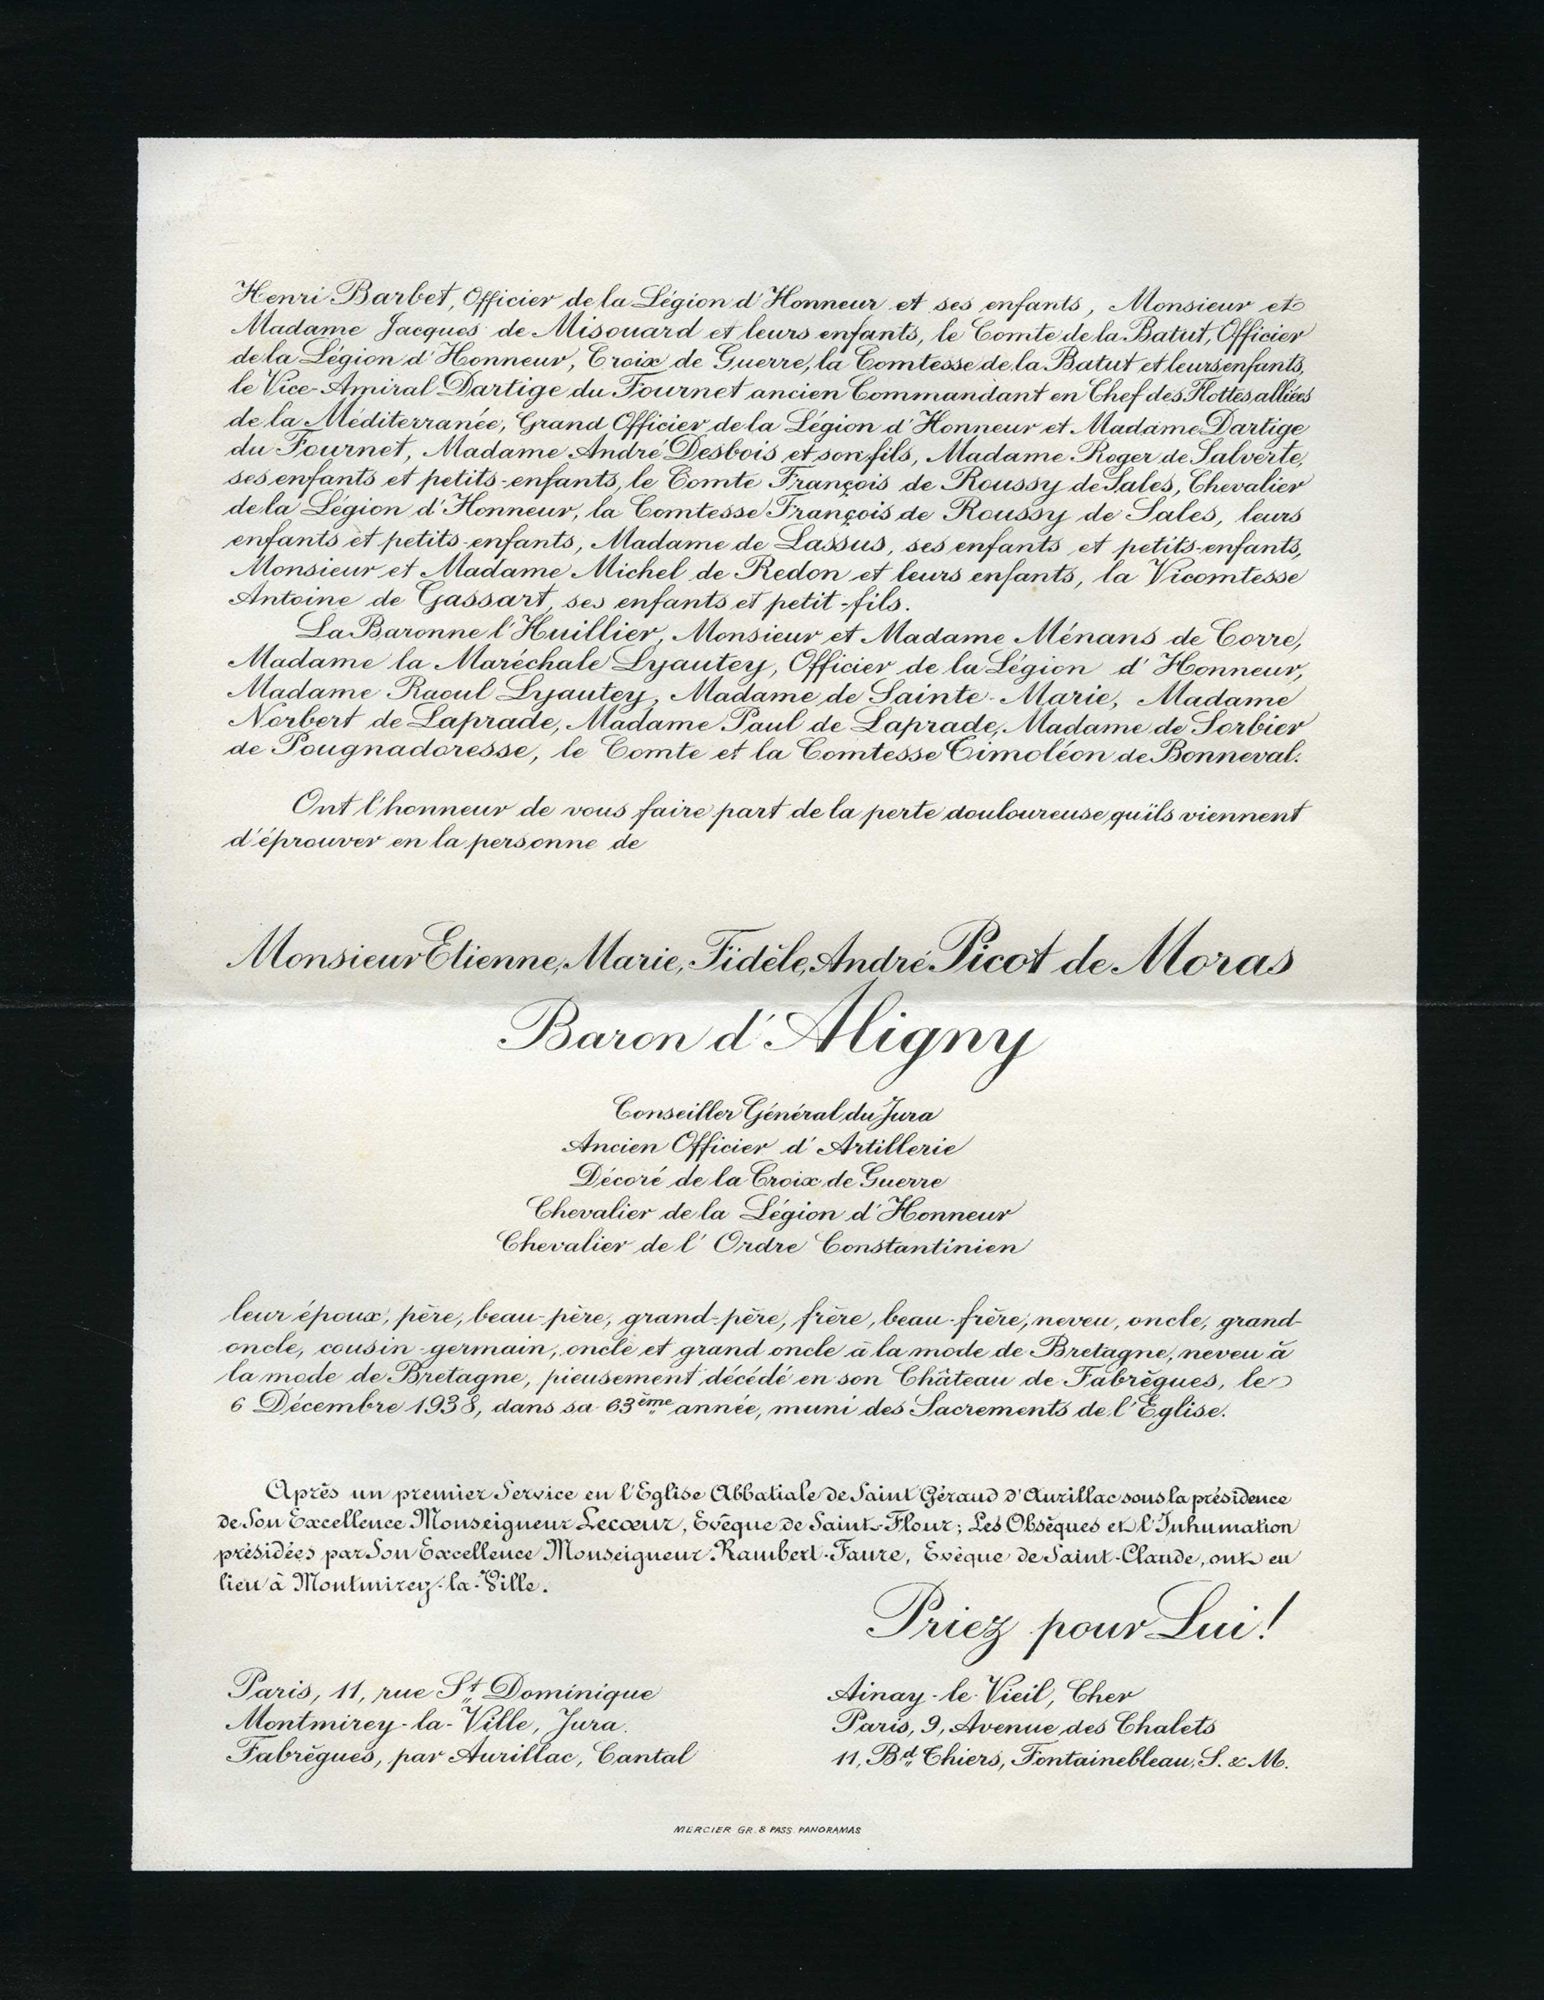 Henri Barbet, Officier de la Légion d'Honneur et ses enfants, Monsieur et
Madame Jacques de Misouard et leurs enfants, le Comte de la Batut, Officier
de la Légion d'Honneur, Croix de Guerre, la Comtesse de la Batut et leurs enfants,
le Vice-Amiral Dartige du Fournet ancien Commandant en Chef des Flottes alliées
de la Méditerranée, Grand Officier de la Légion d'Honneur et Madame Dartige
du Fournet, Madame André Desbois et son fils, Madame Roger de Salverte,
ses enfants et petits-enfants, le Comte François de Roussy de Sales, Chevalier
de la Légion d'Honneur, la Comtesse François de Roussy de Sales, leurs
enfants et petits-enfants, Madame de Lassus, ses enfants et petits-enfants,
Monsieur et Madame Michel de Redon et leurs enfants, la Vicomtesse
Antoine de Gassart, ses enfants et petit-fils.
La Baronne l'Huillier, Monsieur et Madame Ménans de Corre,
Madame la Maréchale Lyautey, Officier de la Légion d'Honneur,
Madame Raoul Lyautey, Madame de Sainte-Marie, Madame
Norbert de Laprade, Madame Paul de Laprade, Madame de Sorbier
de Pougnadoresse, le Comte et la Comtesse Timoléon de Bonneval.
Ont l'honneur de vous faire part de la perte douloureuse qu'ils viennent
d'éprouver en la personne de
Monsieur Etienne, Marie, Fidèle, André Picot de Moras
Baron d'Aligny
Conseiller Général du Jura
Ancien Officier d'Artillerie
Décoré de la Croix de Guerre
Chevalier de la Légion d'Honneur
Chevalier de l'Ordre Constantinien
leur époux, père, beau-père, grand-père, frère, beau-frère, neveu, oncle, grand-
oncle, cousin-germain, oncle et grand oncle à la mode de Bretagne, neveu à
la mode de Bretagne, pieusement décédé en son Château de Fabrègues, le
6 Décembre 1938, dans sa 63ème année, muni des Sacrements de l'Eglise.
Après un premier Service en l'Eglise Abbatiale de Saint Géraud d'Aurillac sous la présidence
de Son Excellence Monseigneur Lecœur, Evêque de Saint-Flour; Les Obsèques et l'Inhumation
présidées par Son Excellence Monseigneur Rambert-Faure, Evèque de Saint-Claude, ont eu
lieu à Montmirey-la-Ville.
Priez pour Lui!
Paris, 11, rue St Dominique
Montmirey-la-Ville, Jura.
Fabrègues, par Aurillac, Cantal
Ainay-le-Vieil, Cher
Paris, 9, Avenue des Chalets
11, Bd Thiers, Fontainebleau, S. & M.
MERCIER GR. 8 PASS. PANORAMAS